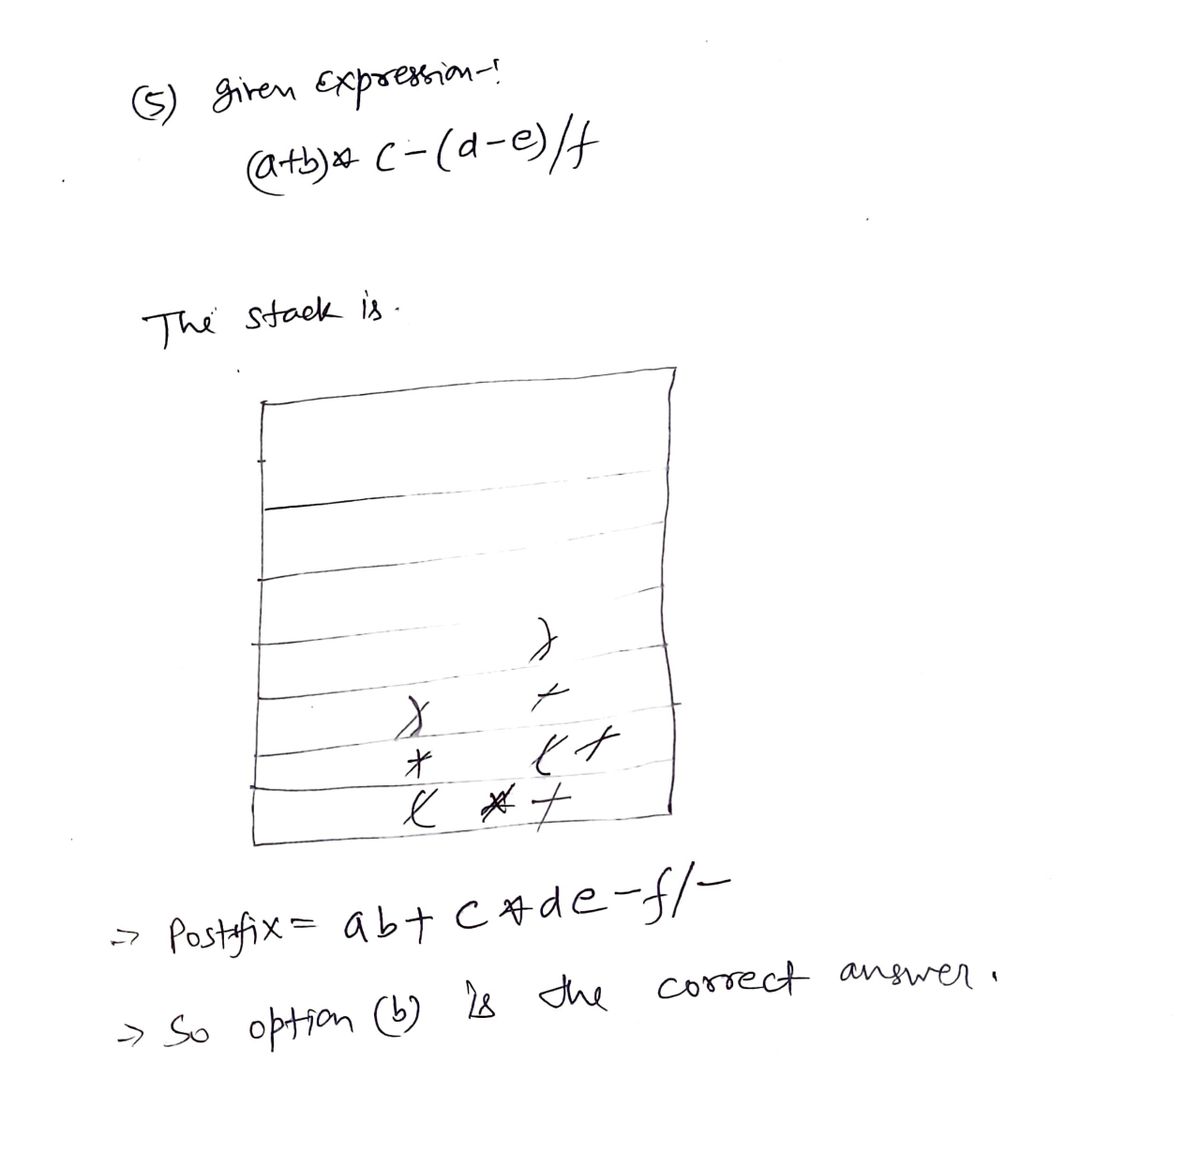 (5) given Expression-:
(a+b)* c-(d-e)/f
The stack is.
)
) +
* ( +
( * +
=> Postfix= ab+ c*de-f/-
-> So option (b) is the correct answer.